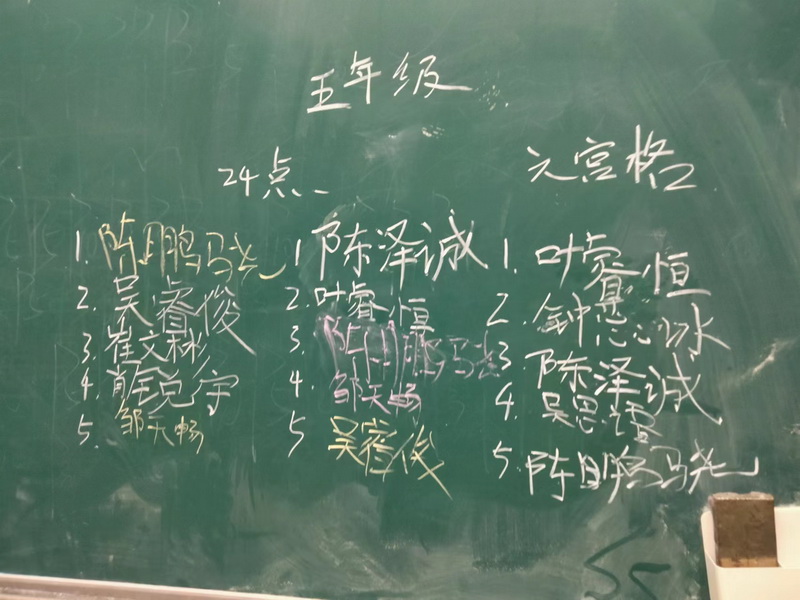 五年级
24点
1. 陈鹏骁
2. 吴睿俊
3. 崔文彬
4. 肖锐宇
5. 邹天畅
1 陈泽诚
2. 叶睿恒
3. 陈鹏骁
4. 邹天畅
5 吴睿俊
元宫格
1. 叶睿恒
2. 钟
3 陈泽诚
4 吴思
5. 陈鹏骁